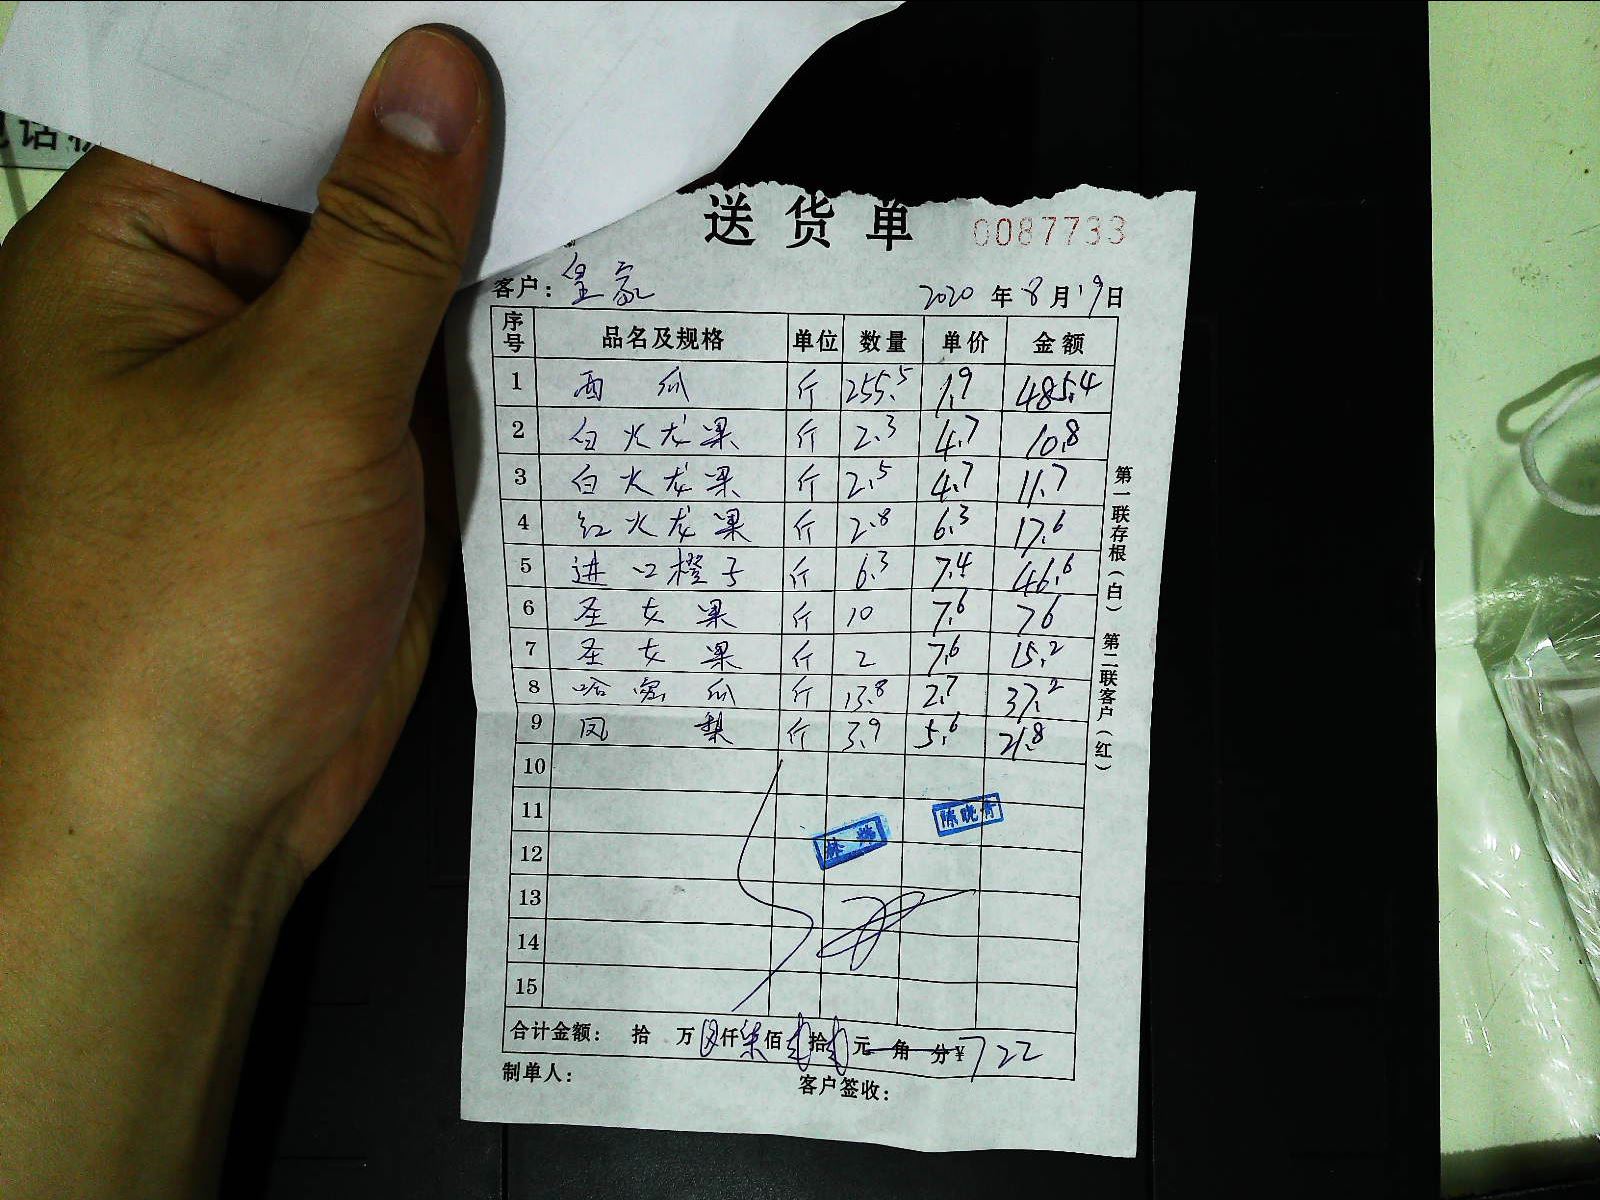 送货单 0087733
客户：皇家 2020年8月19日
序号 品名及规格 单位 数量 单价 金额
1 西瓜 斤 255.5 1.9 485.4
2 白火龙果 斤 2.3 4.7 10.8
3 白火龙果 斤 2.5 4.7 11.7
4 红火龙果 斤 2.8 6.3 17.6
5 进口橙子 斤 6.3 7.4 46.6
6 圣女果 斤 10 7.6 76
7 圣女果 斤 2 7.6 15.2
8 哈密瓜 斤 13.8 2.7 37.2
9 凤梨 斤 3.9 5.6 21.8
10
11 陈晓青
12
13
14
15
合计金额： 拾 万 仟柒佰贰拾贰元 角 分¥722
制单人： 客户签收：
第一联存根（白） 第二联客户（红）